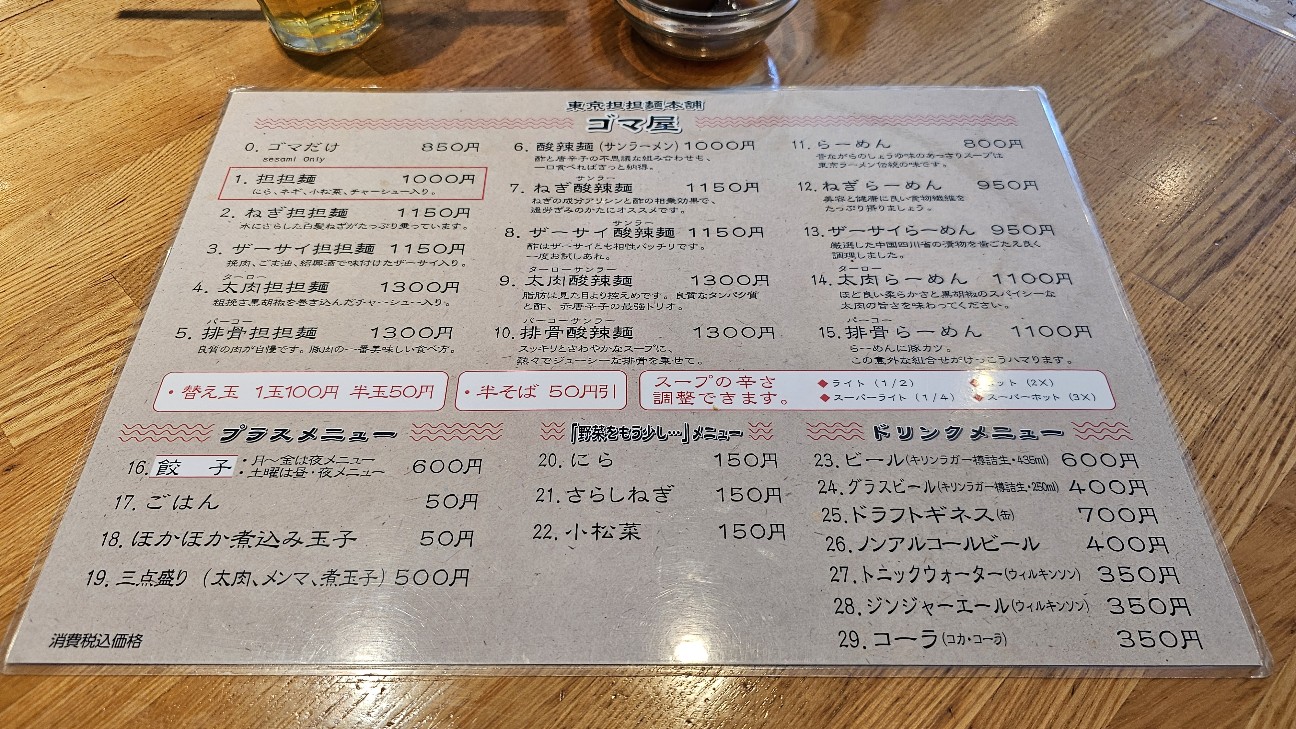 東京担担麺本舗
ゴマ屋
0. ゴマだけ 850円
sesami Only
1. 担担麺 1000円
にら、ネギ、小松菜、チャーシュー入り。
2. ねぎ担担麺 1150円
水にさらした白髪ねぎがたっぷり乗っています。
3. ザーサイ担担麺 1150円
挽肉、ごま油、紹興酒で味付けたザーサイ入り。
ターロー
4. 太肉担担麺 1300円
粗挽き黒胡椒を巻き込んだチャーシュー入り。
パーコー
5. 排骨担担麺 1300円
良質の肉が自慢です。豚肉の一番美味しい食べ方。
6. 酸辣麺(サンラーメン) 1000円
酢と唐辛子の不思議な組み合わせも、
一口食べればきっと納得。
サンラー
7. ねぎ酸辣麺 1150円
ねぎの成分アリシンと酢の相乗効果で、
疲労ぎみのかたにオススメです。
サンラー
8. ザーサイ酸辣麺 1150円
酢はザーサイとも相性バッチリです。
一度お試しあれ。
ターローサンラー
9. 太肉酸辣麺 1300円
脂肪は見た目より控えめです。良質なタンパク質
と酢、赤唐辛子の最強トリオ。
パーコーサンラー
10. 排骨酸辣麺 1300円
スッキリとさわやかなスープに、
熱々でジューシーな排骨を乗せて。
11. らーめん 800円
昔ながらのしょうゆ味のあっさりスープは
東京ラーメン伝統の味です。
12. ねぎらーめん 950円
美容と健康に良い食物繊維を
たっぷり摂りましょう。
13. ザーサイらーめん 950円
厳選した中国四川省の漬物を歯ごたえ良く
調理しました。
ターロー
14. 太肉らーめん 1100円
ほど良い柔らかさと黒胡椒のスパイシーな
太肉の旨さを味わってください。
パーコー
15. 排骨らーめん 1100円
らーめんに豚カツ。
この意外な組合せがけっこうハマります。
・替え玉 1玉100円 半玉50円
・半そば 50円引
スープの辛さ
調整できます。
◆ライト (1/2)
◆スーパーライト (1/4)
◆ホット (2X)
◆スーパーホット (3X)
プラスメニュー
16. 餃子 ・月〜金は夜メニュー 600円
・土曜は昼・夜メニュー
17. ごはん 50円
18. ほかほか煮込み玉子 50円
19. 三点盛り (太肉、メンマ、煮玉子) 500円
「野菜をもう少し…」メニュー
20. にら 150円
21. さらしねぎ 150円
22. 小松菜 150円
ドリンクメニュー
23. ビール(キリンラガー樽詰生・435ml) 600円
24. グラスビール(キリンラガー樽詰生・250ml) 400円
25. ドラフトギネス(缶) 700円
26. ノンアルコールビール 400円
27. トニックウォーター(ウィルキンソン) 350円
28. ジンジャーエール(ウィルキンソン) 350円
29. コーラ(コカ・コーラ) 350円
消費税込価格